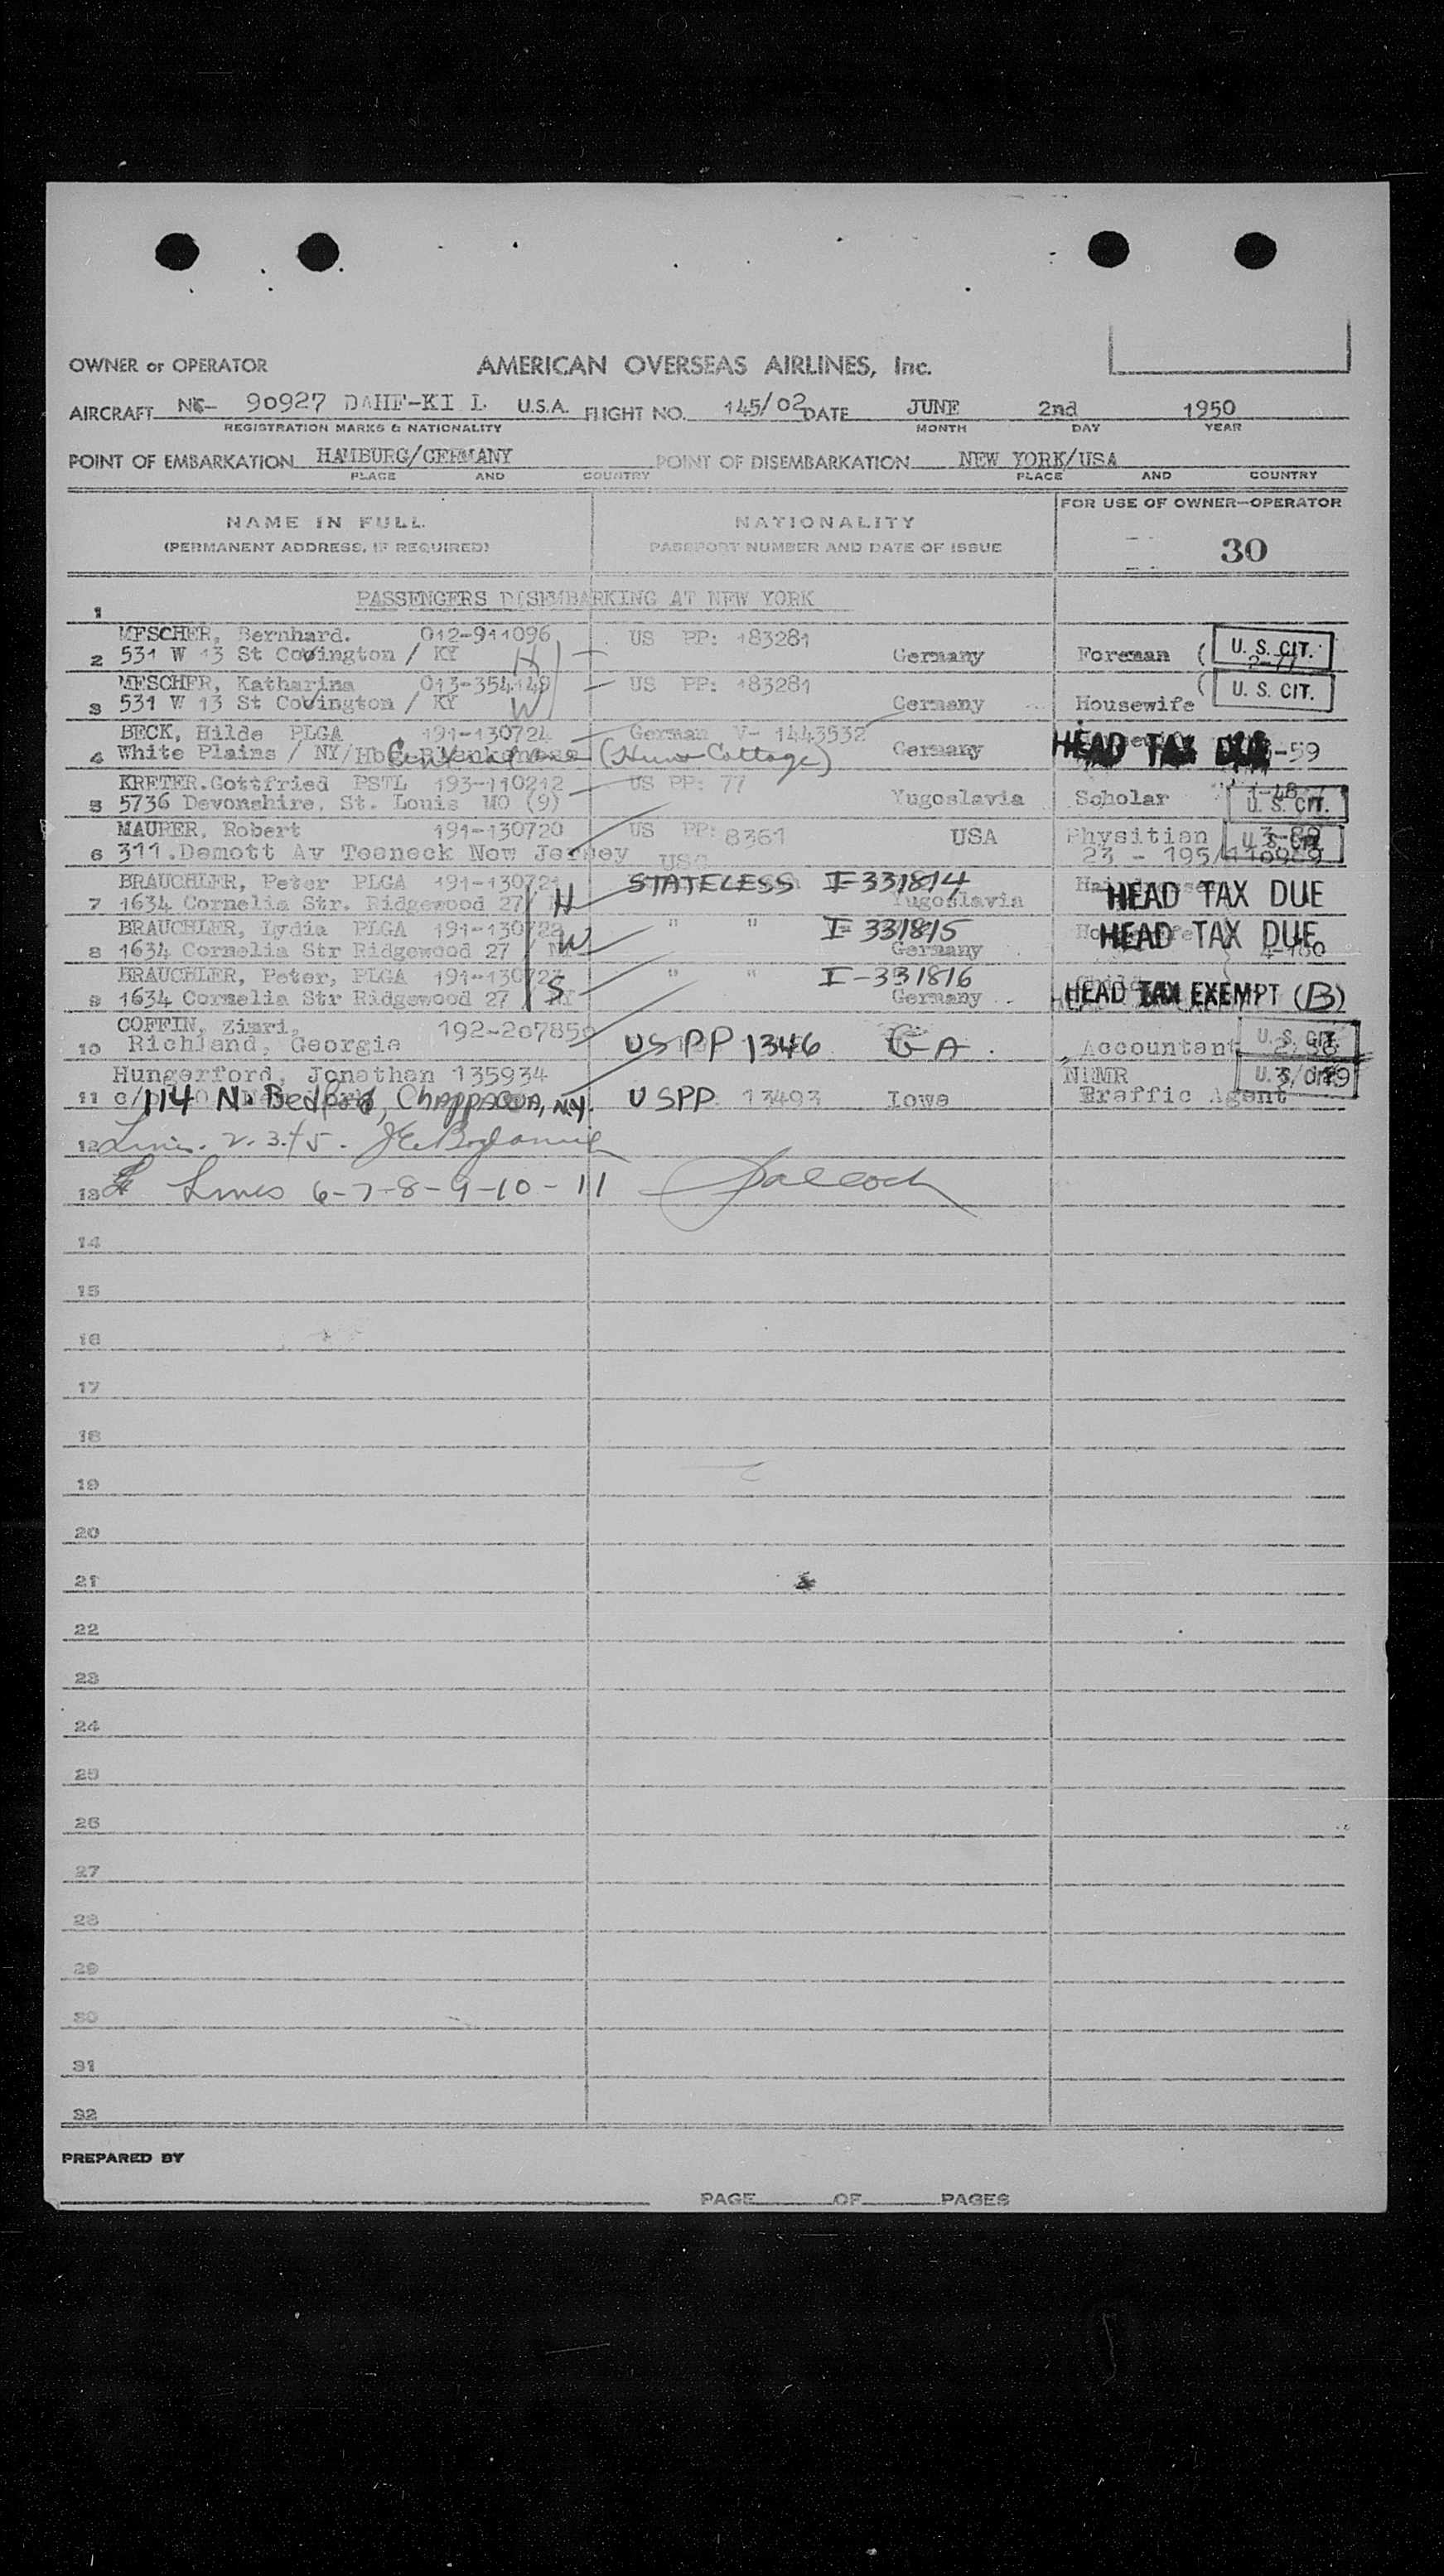 OWNER or OPERATOR AMERICAN OVERSEAS AIRLINES, Inc.
AIRCRAFT 90927 U.S.A. FLIGHT NO. 145/02 DATE JUNE 2nd 1950
REGISTRATION MARKS & NATIONALITY MONTH DAY YEAR
POINT OF EMBARKATION HAMBURG/GERMANY POINT OF DISEMBARKATION NEW YORK/USA
PLACE AND COUNTRY PLACE AND COUNTRY
NAME IN FULL NATIONALITY FOR USE OF OWNER-OPERATOR
(PERMANENT ADDRESS, IF REQUIRED) PASSPORT NUMBER AND DATE OF ISSUE 30
1 PASSENGERS DISEMBARKING AT NEW YORK
MESCHER, Bernhard. 012-911096 US PP: 183281 U. S. CIT.
2 531 W 13 St Covington / KY H Germany Foreman (
MESCHER, Katharina 013-354149 US PP: 183281 ( U. S. CIT.
3 531 W 13 St Covington / KY W Germany Housewife
BECK, Hilde PLGA 191-130724 German V- 1443532
4 White Plains / NY/Hbg Germany HEAD TAX DUE -59
KRETER.Gottfried PSTL 193-110212 US PP: 77
5 5736 Devonshire, St. Louis MO (9) Yugoslavia Scholar U. S. CIT.
MAURER, Robert 191-130720 US PP: 8361 USA Physitian
6 311.Demott Av Teeneck New Jersey USC 23 - 195/
BRAUCHLER, Peter PLGA 191-130721 STATELESS I-331814
7 1634 Cornelia Str. Ridgewood 27/ H Yugoslavia HEAD TAX DUE
BRAUCHLER, Lydia PLGA 191-130722 " " I-331815
8 1634 Cornelia Str Ridgewood 27 / W Germany HEAD TAX DUE
BRAUCHLER, Peter, PLGA 191-130723 " " I-331816
9 1634 Cornelia Str Ridgewood 27 / S Germany HEAD TAX EXEMPT (B)
COFFIN, Zimri, 192-207859 U. S. CIT.
10 Richland, Georgia US PP 1346 GA. Accountant
Hungerford, Jonathan 135934
11 c/ 114 N. Bedford, Chappaqua, N.Y. USPP 13493 Iowa Traffic Agent
12 Lines. 2. 3. 4 5.
13 Lines 6-7-8-9-10-11
14
15
16
17
18
19
20
21
22
23
24
25
26
27
28
29
30
31
32
PREPARED BY
PAGE OF PAGES